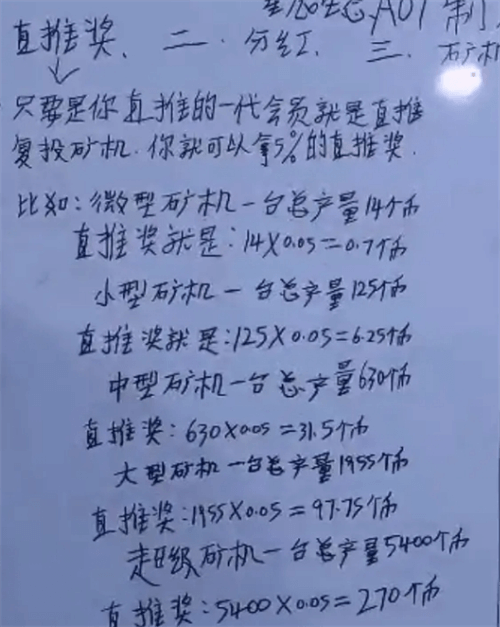 制
直推奖、二.分红、三.矿机
只要是你直推的一代会员就是直推
复投矿机.你就可以拿5%的直推奖.
比如:微型矿机一台总产量14个币
直推奖就是:14X0.05=0.7个币
小型矿机一台总产量125个币
直推奖就是:125X0.05=6.25个币
中型矿机一台总产量630个币
直推奖:630X0.05=31.5个币
大型矿机一台总产量1955个币
直推奖:1955X0.05=97.75个币
超级矿机一台总产量5400个币
直推奖:5400X0.05=270个币